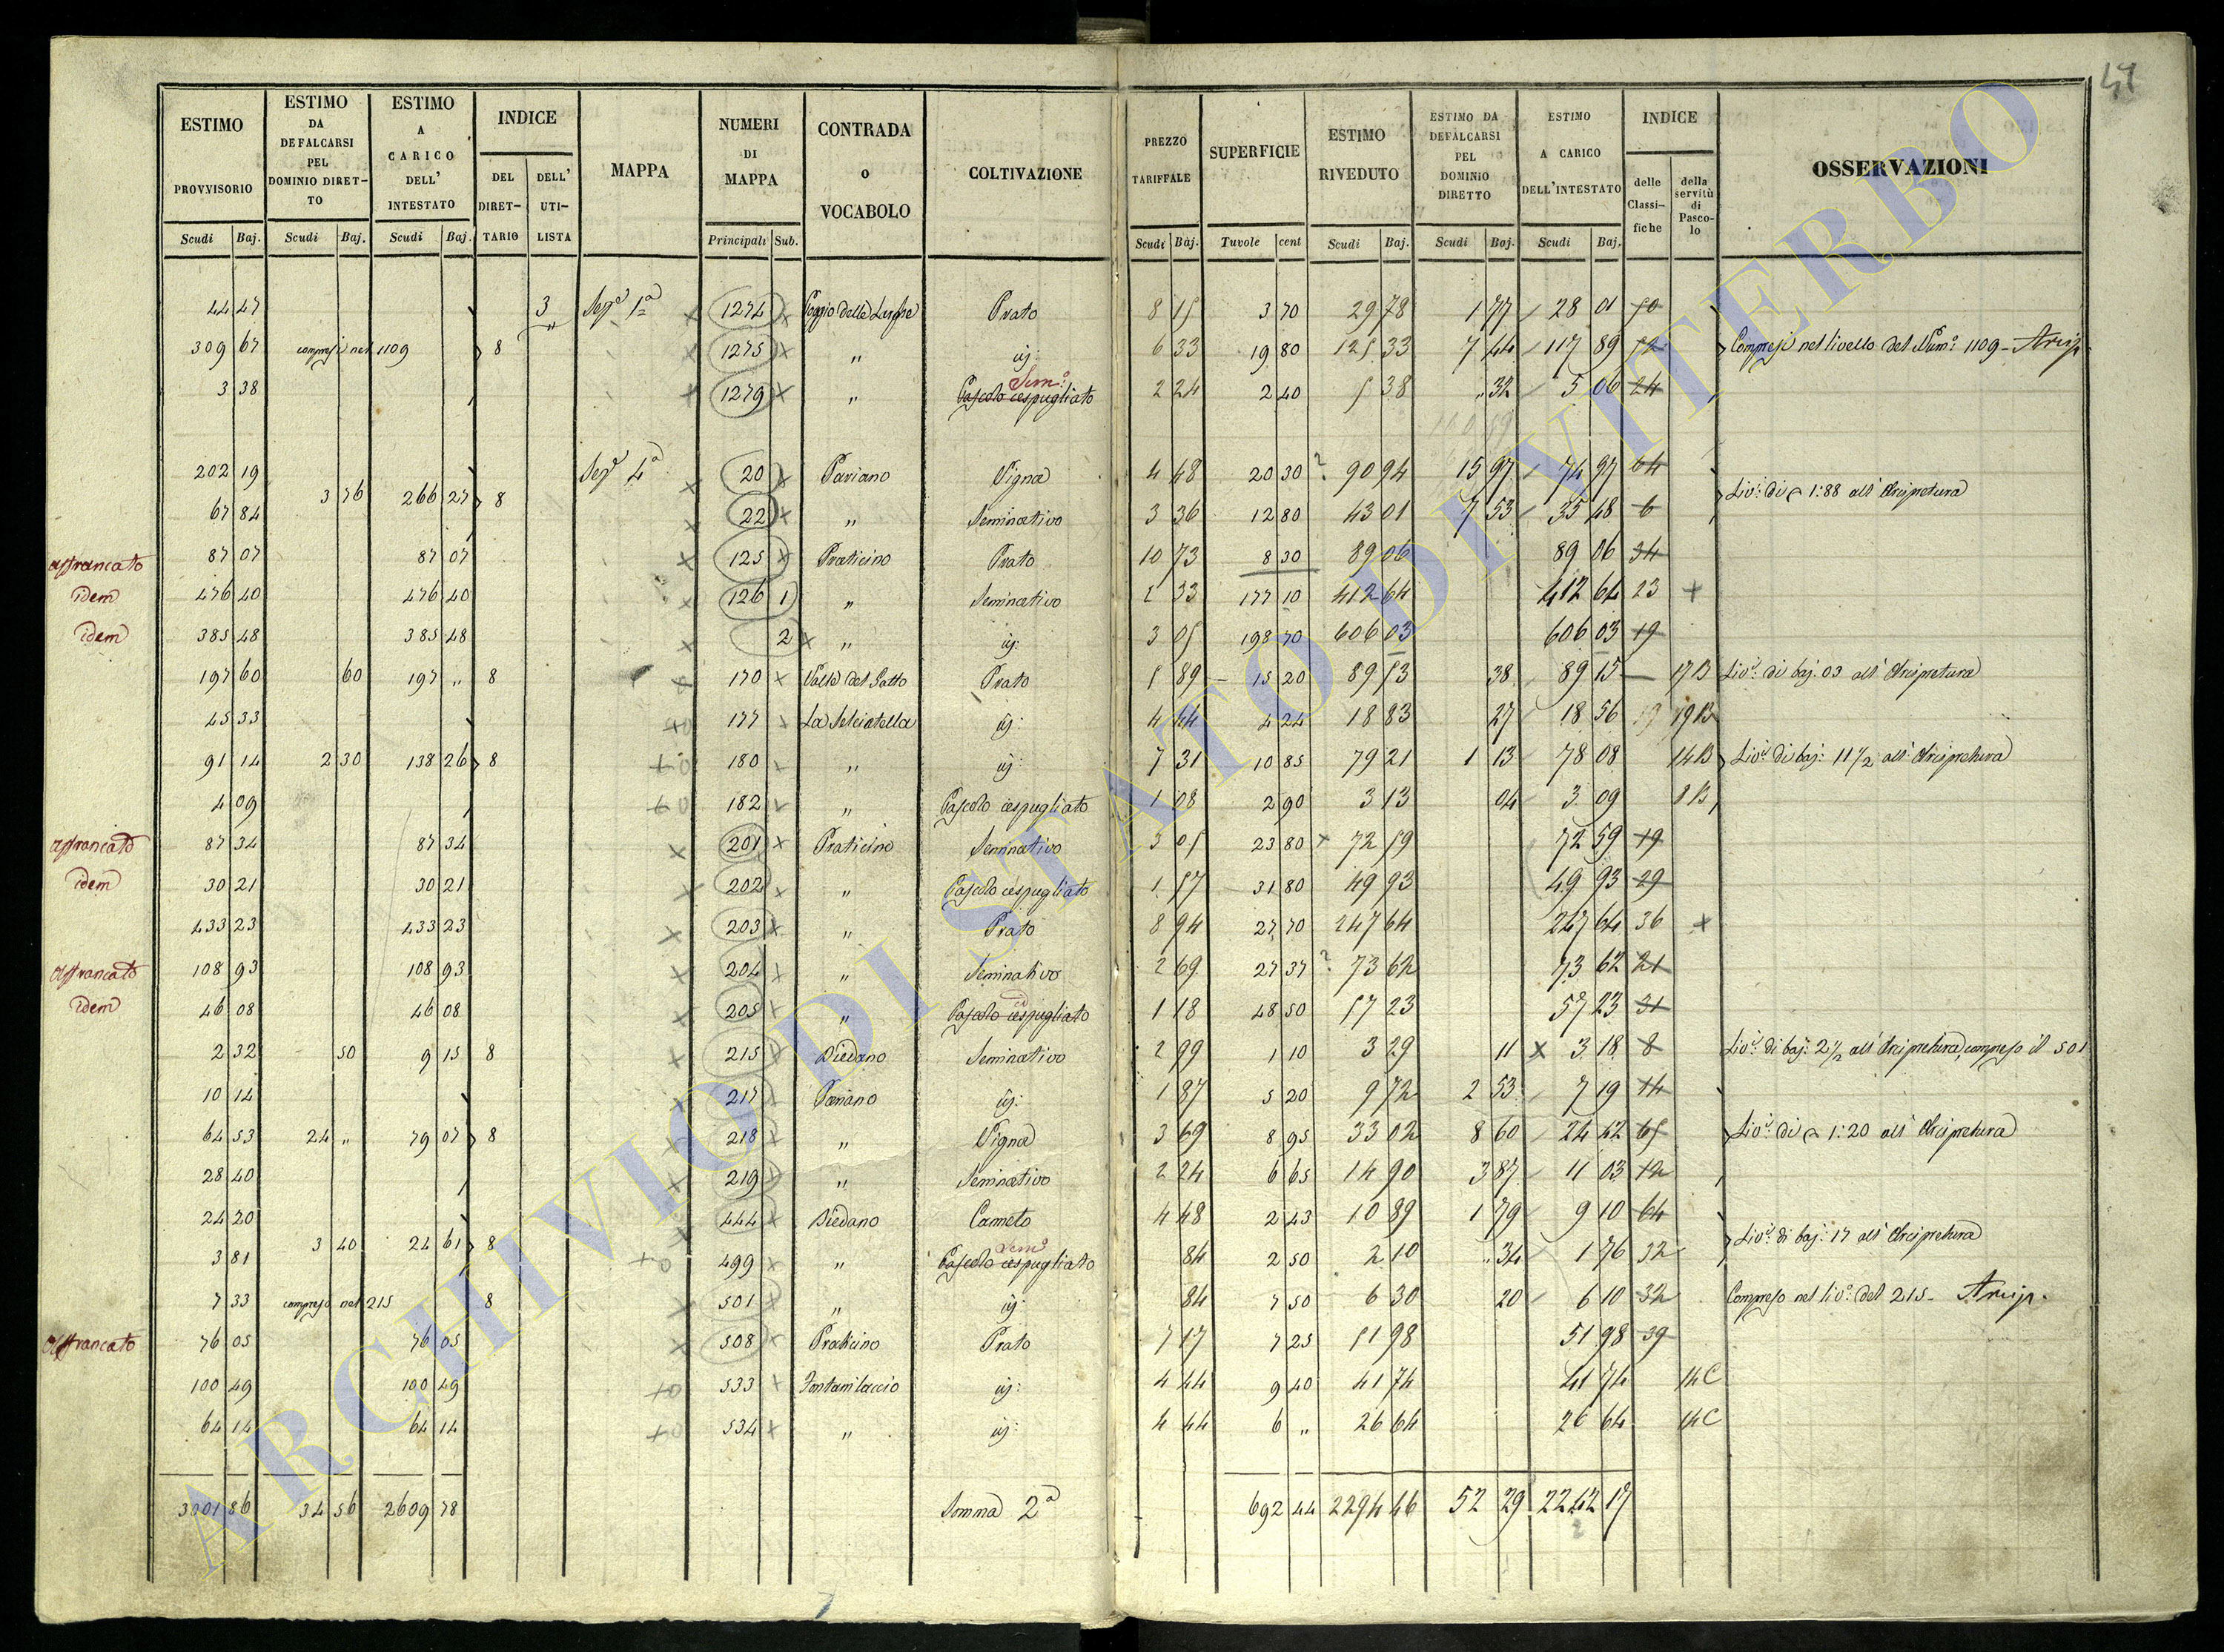 47
ESTIMO PROVVISORIO Scudi Baj.
ESTIMO DA DEFALCARSI PEL DOMINIO DIRETTO Scudi Baj.
ESTIMO A CARICO DELL' INTESTATO Scudi Baj.
INDICE DEL DIRETTARIO DELL' UTILISTA
MAPPA
NUMERI DI MAPPA Principali Sub.
CONTRADA o VOCABOLO
COLTIVAZIONE
PREZZO TARIFFALE Scudi Baj.
SUPERFICIE Tavole cent
ESTIMO RIVEDUTO Scudi Baj.
ESTIMO DA DEFALCARSI PEL DOMINIO DIRETTO Scudi Baj.
ESTIMO A CARICO DELL'INTESTATO Scudi Baj.
INDICE delle Classifiche della servitù di Pascolo
OSSERVAZIONI
44 47 3 Sezⁿ 1ª 1274 Poggio delle Prato 8 15 3 70 29 78 1 77 28 01 50
309 67 compresi nel 1109 8 1275 " id: 6 33 19 80 125 33 7 44 117 89 52 Compresi nel livello del Num: 1109 - Arcip.
3 38 1279 " Pascolo cespugliato Sem: 2 24 2 40 5 38 " 32 5 06 24
202 19 Sezⁿ 4ª 20 Pariano Vigna 4 48 20 30 90 94 15 97 74 97 64
3 76 266 27 8 Liv: di 1:88 all' Arcipretura
67 84 22 " Seminativo 3 36 12 80 43 01 7 53 35 48 6
affrancato 87 07 87 07 125 Praticino Prato 10 73 8 30 89 06 89 06 34
idem 476 40 476 40 126 1 " Seminativo 2 33 177 10 412 64 412 64 23 +
idem 385 48 385 48 2 " id: 3 05 198 70 606 03 606 03 19
197 60 60 197 " 8 170 Valle del Gatto Prato 5 89 15 20 89 53 38 89 15 17 B Liv: di baj. 03 all' Arcipretura
45 33 177 La Selciatella id: 4 44 4 24 18 83 27 18 56 19 B
91 14 2 30 138 26 8 180 " id: 7 31 10 85 79 21 1 13 78 08 14 B Liv: di baj: 11 1/2 all' Arcipretura
4 09 182 " Pascolo cespugliato 1 08 2 90 3 13 04 3 09 8 B
affrancato 87 34 87 34 201 Praticino Seminativo 3 05 23 80 72 59 72 59 19
idem 30 21 30 21 202 " Pascolo cespugliato 1 57 31 80 49 93 49 93 29
433 23 433 23 203 " Prato 8 94 27 70 247 64 247 64 36 +
affrancato 108 93 108 93 204 " Seminativo 2 69 27 37 73 62 73 62 21
idem 46 08 46 08 205 " Pascolo cespugliato 1 18 48 50 57 23 57 23 31
2 32 50 9 15 8 215 Diedano Seminativo 2 99 1 10 3 29 11 3 18 8 Liv: di baj: 2 1/2 all' Arcipretura, compreso il 501
10 14 217 Pariano id: 1 87 5 20 9 72 2 53 7 19 14
64 53 24 " 79 07 8 218 " Vigna 3 69 8 95 33 02 8 60 24 42 65 Liv: di 1:20 all' Arcipretura
28 40 219 " Seminativo 2 24 6 65 14 90 3 87 11 03 12
24 20 444 Diedano Canneto 4 48 2 43 10 89 1 79 9 10 64
3 40 24 61 8 Liv: di baj: 17 all' Arcipretura
3 81 499 " Pascolo cespugliato Sem: 84 2 50 2 10 " 34 1 76 32
7 33 compreso nel 215 8 501 " id: 84 7 50 6 30 20 6 10 32 Compreso nel liv: del 215 - Arcip.
affrancato 76 05 76 05 508 Praticino Prato 7 17 7 25 51 98 51 98 39
100 49 100 49 533 Fontanilaccio id: 4 44 9 40 41 74 41 74 14 C
64 14 64 14 534 " id: 4 44 6 " 26 64 26 64 14 C
3001 86 34 56 2609 78 Somma 2ª 692 44 2294 46 52 29 2242 17
ARCHIVIO DI STATO DI VITERBO